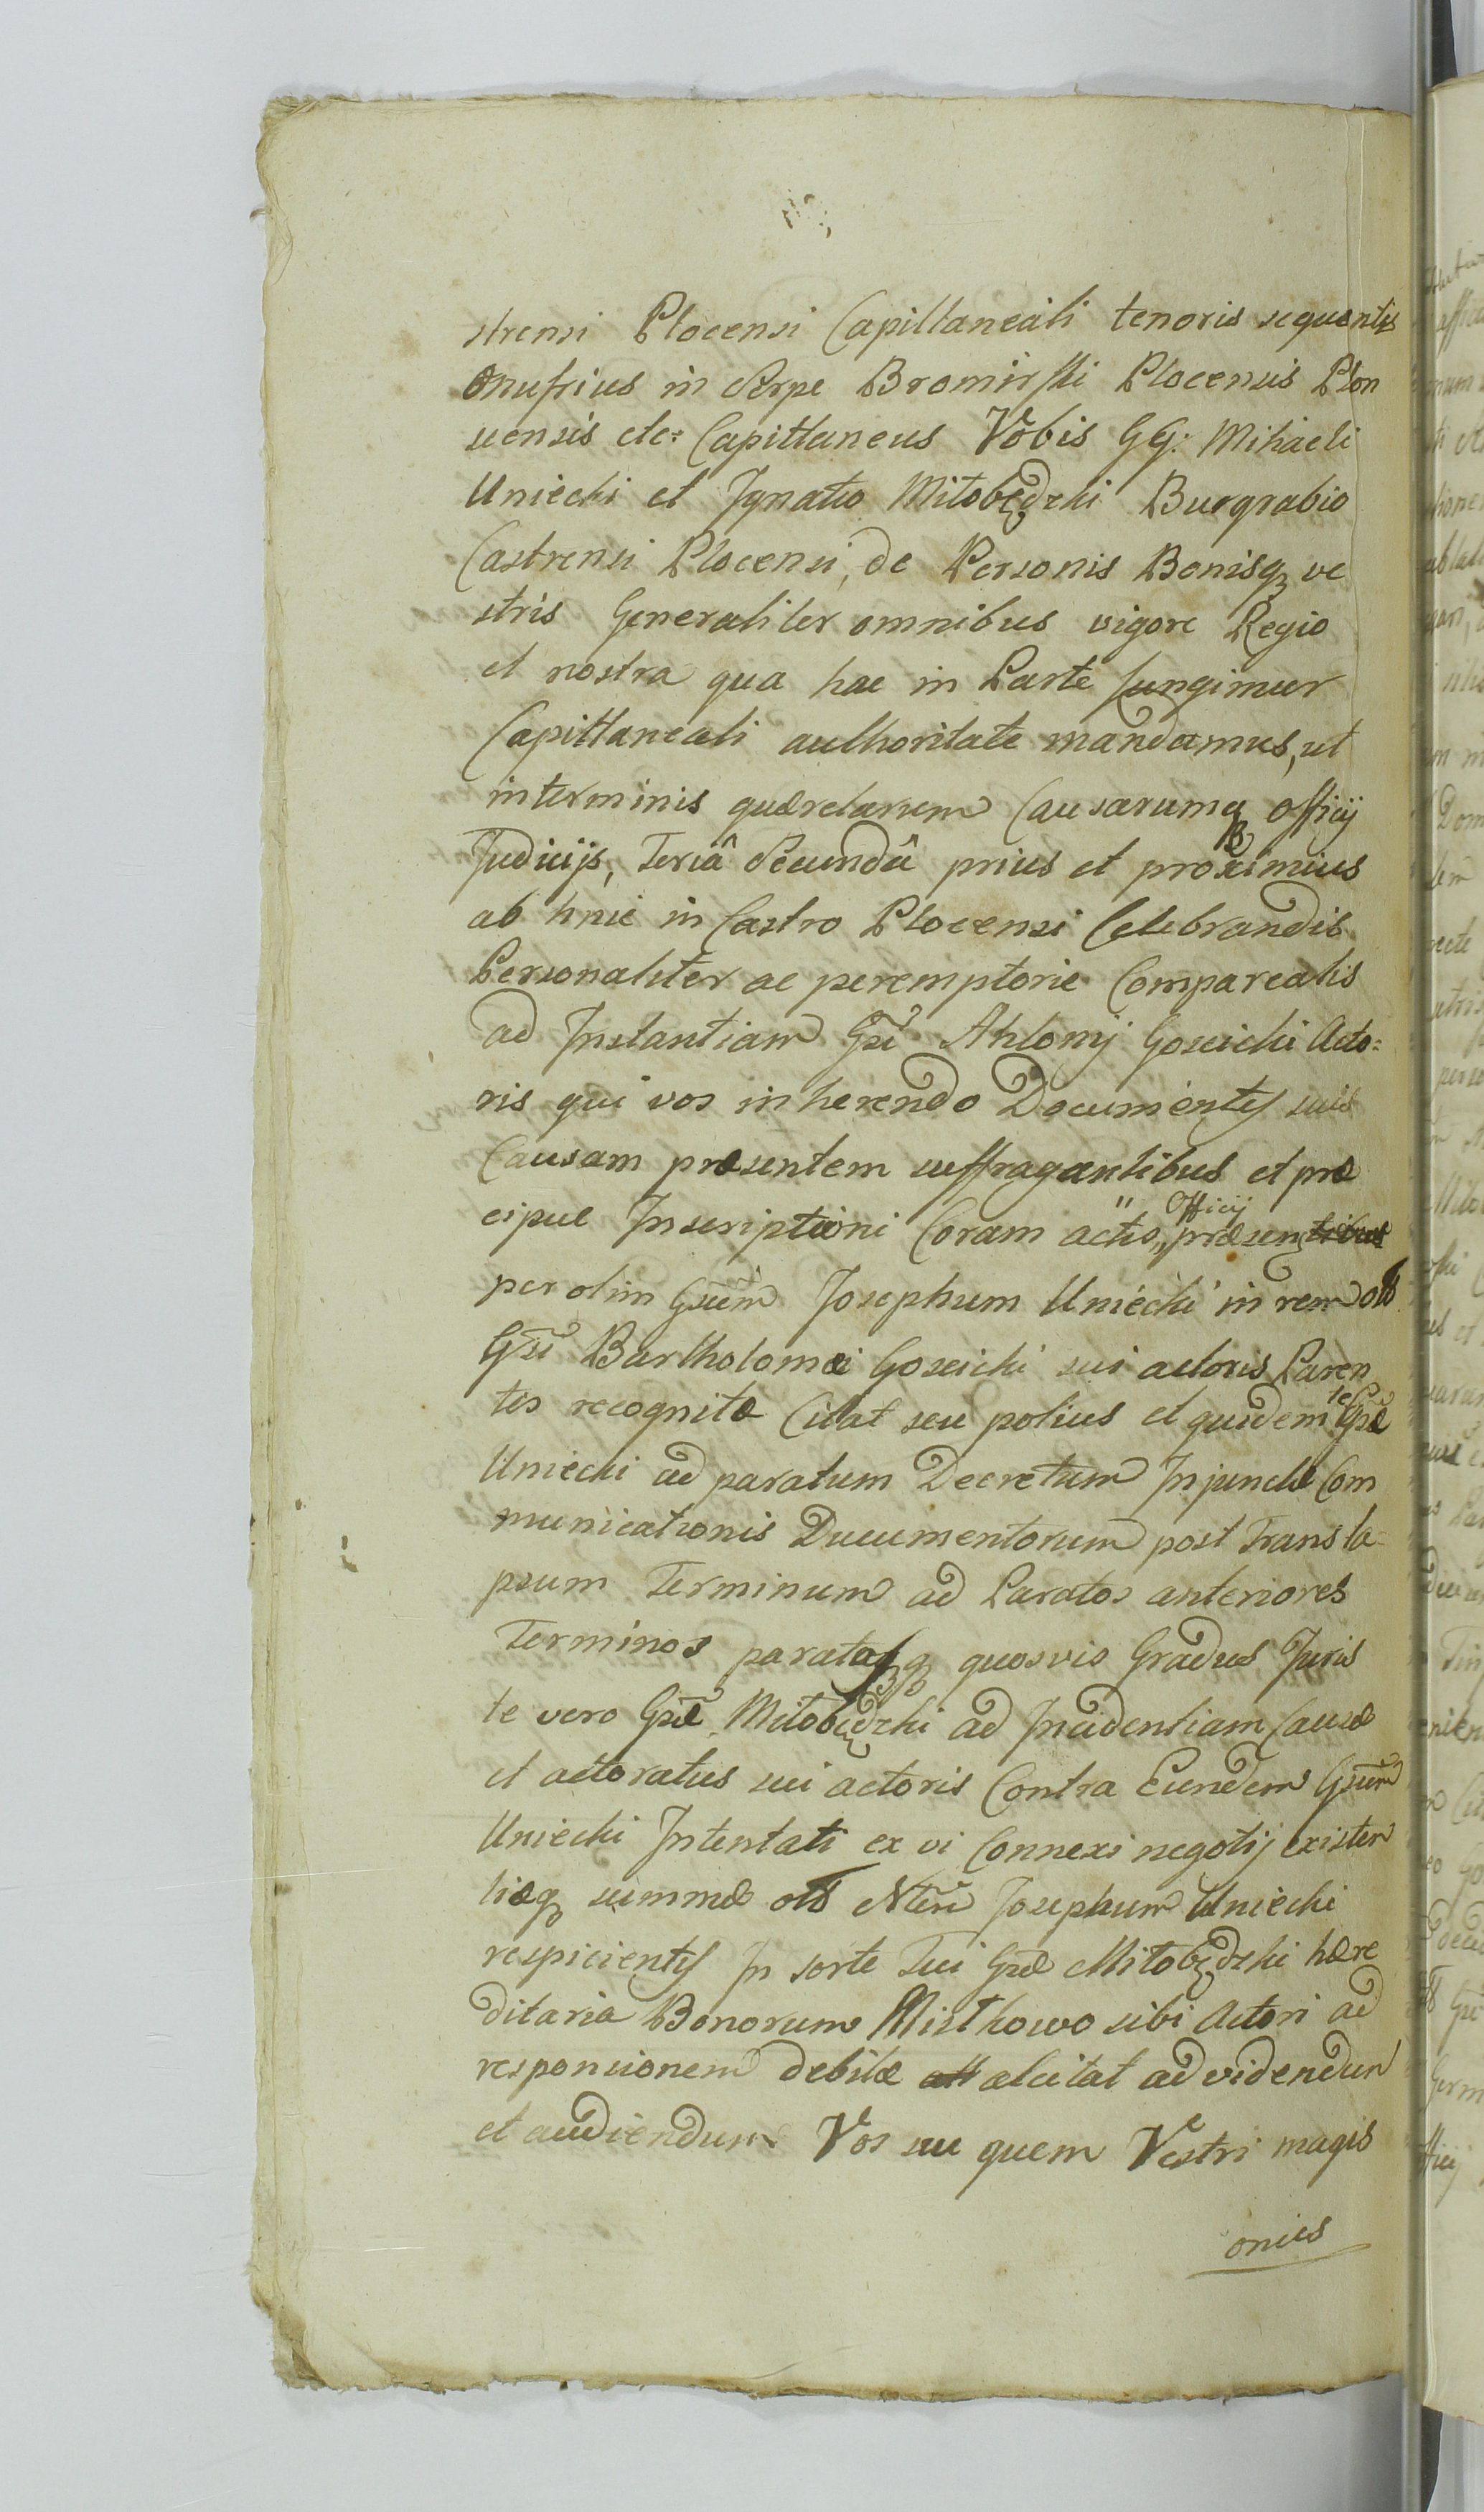 strensi Plocensi Capittaneali tenoris sequentis
Onufrius in Serpe Bromirski Plocensis Plon
scensis etc: Capittaneus Vobis GG: Mihaeli
Uniecki et Ignatio Miłobędzki Burgrabio
Castrensi Plocensi, de Personis Bonisq ve
stris Generaliter omnibus vigore Regio
et nostra qua hac in Parte fungimur
Capittaneali authoritate mandamus, ut
in terminis quærelarum Causarumq officij
Judicijs, Feriâ Secundâ prius et proximius
ab hinc in Castro Plocensi Celebrandis
Personaliter ac peremptorie Compareatis
ad Instantiam Gsi Antonij Gosicki Acto:
ris qui vos inherendo Documentis suis
Causam præsentem suffragantibus et præ
cipue Inscriptioni Coram actis,, Officij præsen
per olim Gsum Josephum Uniecki in rem olb
Gsi Bartholomæi Gosicki sui actoris Paren
tis recognitæ Citat seu potius et quidem te Gse
Uniecki ad paratum Decretum Injunctæ Com
municationis Documentorum post Transla-
psum Terminum ad Paratos anteriores
Terminos paratosq quosvis Gradus Juris
te vero Gse Miłobędzki ad Incidentiam Causæ
et actoratus sui actoris Contra Eundem Gsum
Uniecki Intentati ex vi Connexi negotij existen
tiæq summæ olb Josephum Uniecki
respicientis In sorte Tui Gse Miłobędzki hære
ditaria Bonorum Mistkowo sibi Actori ad
responsionem debitæ adcitat ad videndum
et audiendum Vos seu quem Vestri magis
onius